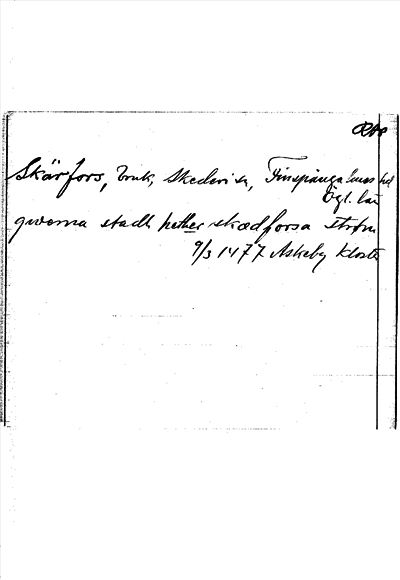 Skärfors, bruk, Skedevi sn, Finspånga läns hd
Ögl. län
qwerna stadh hether skædforsa strøm
9/3 1477 Askeby kloster